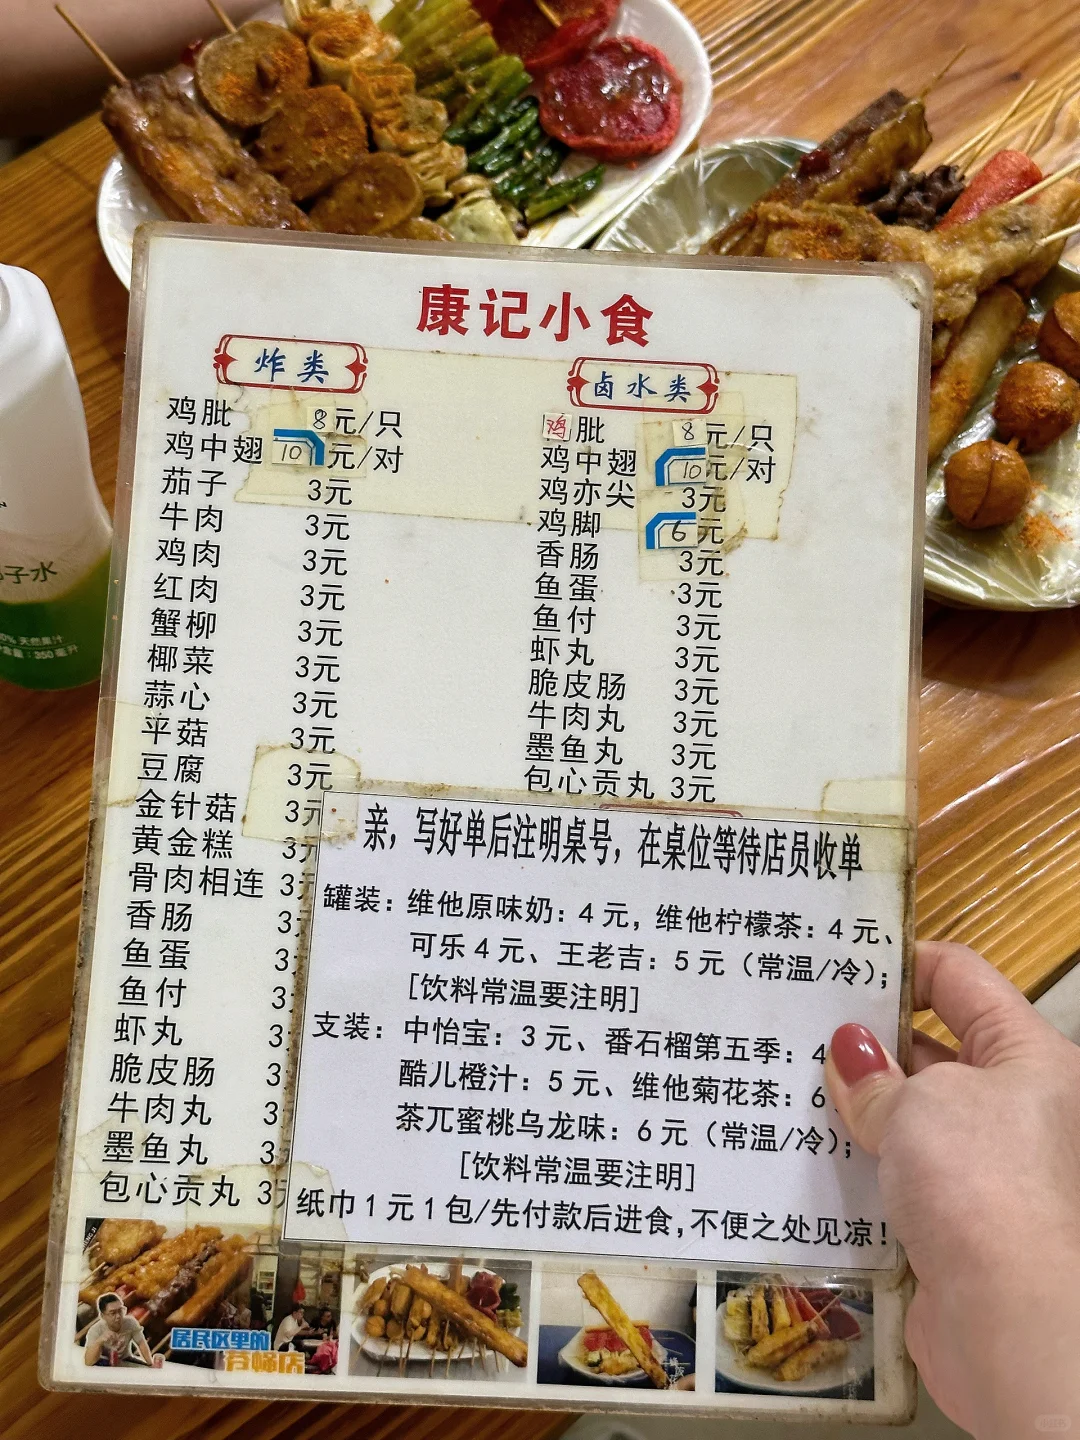 康记小食
炸类
鸡肶 8元/只
鸡中翅 10元/对
茄子 3元
牛肉 3元
鸡肉 3元
红肉 3元
蟹柳 3元
椰菜 3元
蒜心 3元
平菇 3元
豆腐 3元
金针菇 3元
黄金糕 3元
骨肉相连 3元
香肠 3
鱼蛋 3
鱼付 3
虾丸 3
脆皮肠 3
牛肉丸 3
墨鱼丸 3
包心贡丸 3
卤水类
鸡肶 8元/只
鸡中翅 10元/对
鸡亦尖 3元
鸡脚 6元
香肠 3元
鱼蛋 3元
鱼付 3元
虾丸 3元
脆皮肠 3元
牛肉丸 3元
墨鱼丸 3元
包心贡丸 3元
亲，写好单后注明桌号，在桌位等待店员收单
罐装：维他原味奶：4元，维他柠檬茶：4元、
可乐4元、王老吉：5元（常温/冷）；
[饮料常温要注明]
支装：中怡宝：3元、番石榴第五季：4
酷儿橙汁：5元、维他菊花茶：6
茶兀蜜桃乌龙味：6元（常温/冷）；
[饮料常温要注明]
纸巾1元1包/先付款后进食，不便之处见凉！
居民区里的
子水
天然果汁
350毫升